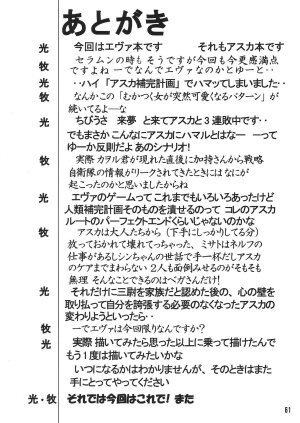 あとがき
光 今回はエヴァ本です それもアスカ本です
牧 セラムンの時もそうですが今回も今更感満点
ですよね ーでなんでエヴァなのかとゆーと‥
光 ‥ハイ「アスカ補完計画」でハマッてしまいました‥
牧 なんかこの「むかつく女が突然可愛くなるパターン」が
続いてるよーな
光 ちびうさ 来夢 と来てアスカと3連敗中です‥
でもまさか こんなにアスカにハマルとはなー ーって
ゆーか反則だよ あのシナリオ!
牧 実際 カヲル君が現れた直後に加持さんから戦略
自衛隊の情報がリークされてたときにはなにが
起こったのかと思いましたからね
光 エヴァのゲームってこれまでもいろいろあったけど
人類補完計画そのものを潰せるのって コレのアスカ
ルートのパーフェクトエンドくらいじゃないのかな
牧 アスカは大人たちから（下手にしっかりしてる分）
放っておかれて壊れてっちゃった、ミサトはネルフの
仕事があるしシンちゃんの世話で手一杯だしアスカ
のケアまでまわらない 2人も面倒みせるのがそもそも
無理 そんなことできるのはべガさんだけ!
光 それだけに三尉を家族だと認めた後の、心の壁を
取り払って自分を誇張する必要のなくなったアスカの
変わりようといったら‥
牧 ーでエヴァは今回限りなんですか?
光 実際 描いてみたら思った以上に乗って描けたんで
もう1度は描いてみたいかな
いつになるかはわかりませんが、そのときはまた
手にとってやってください
光・牧 それでは今回はこれで! また
61